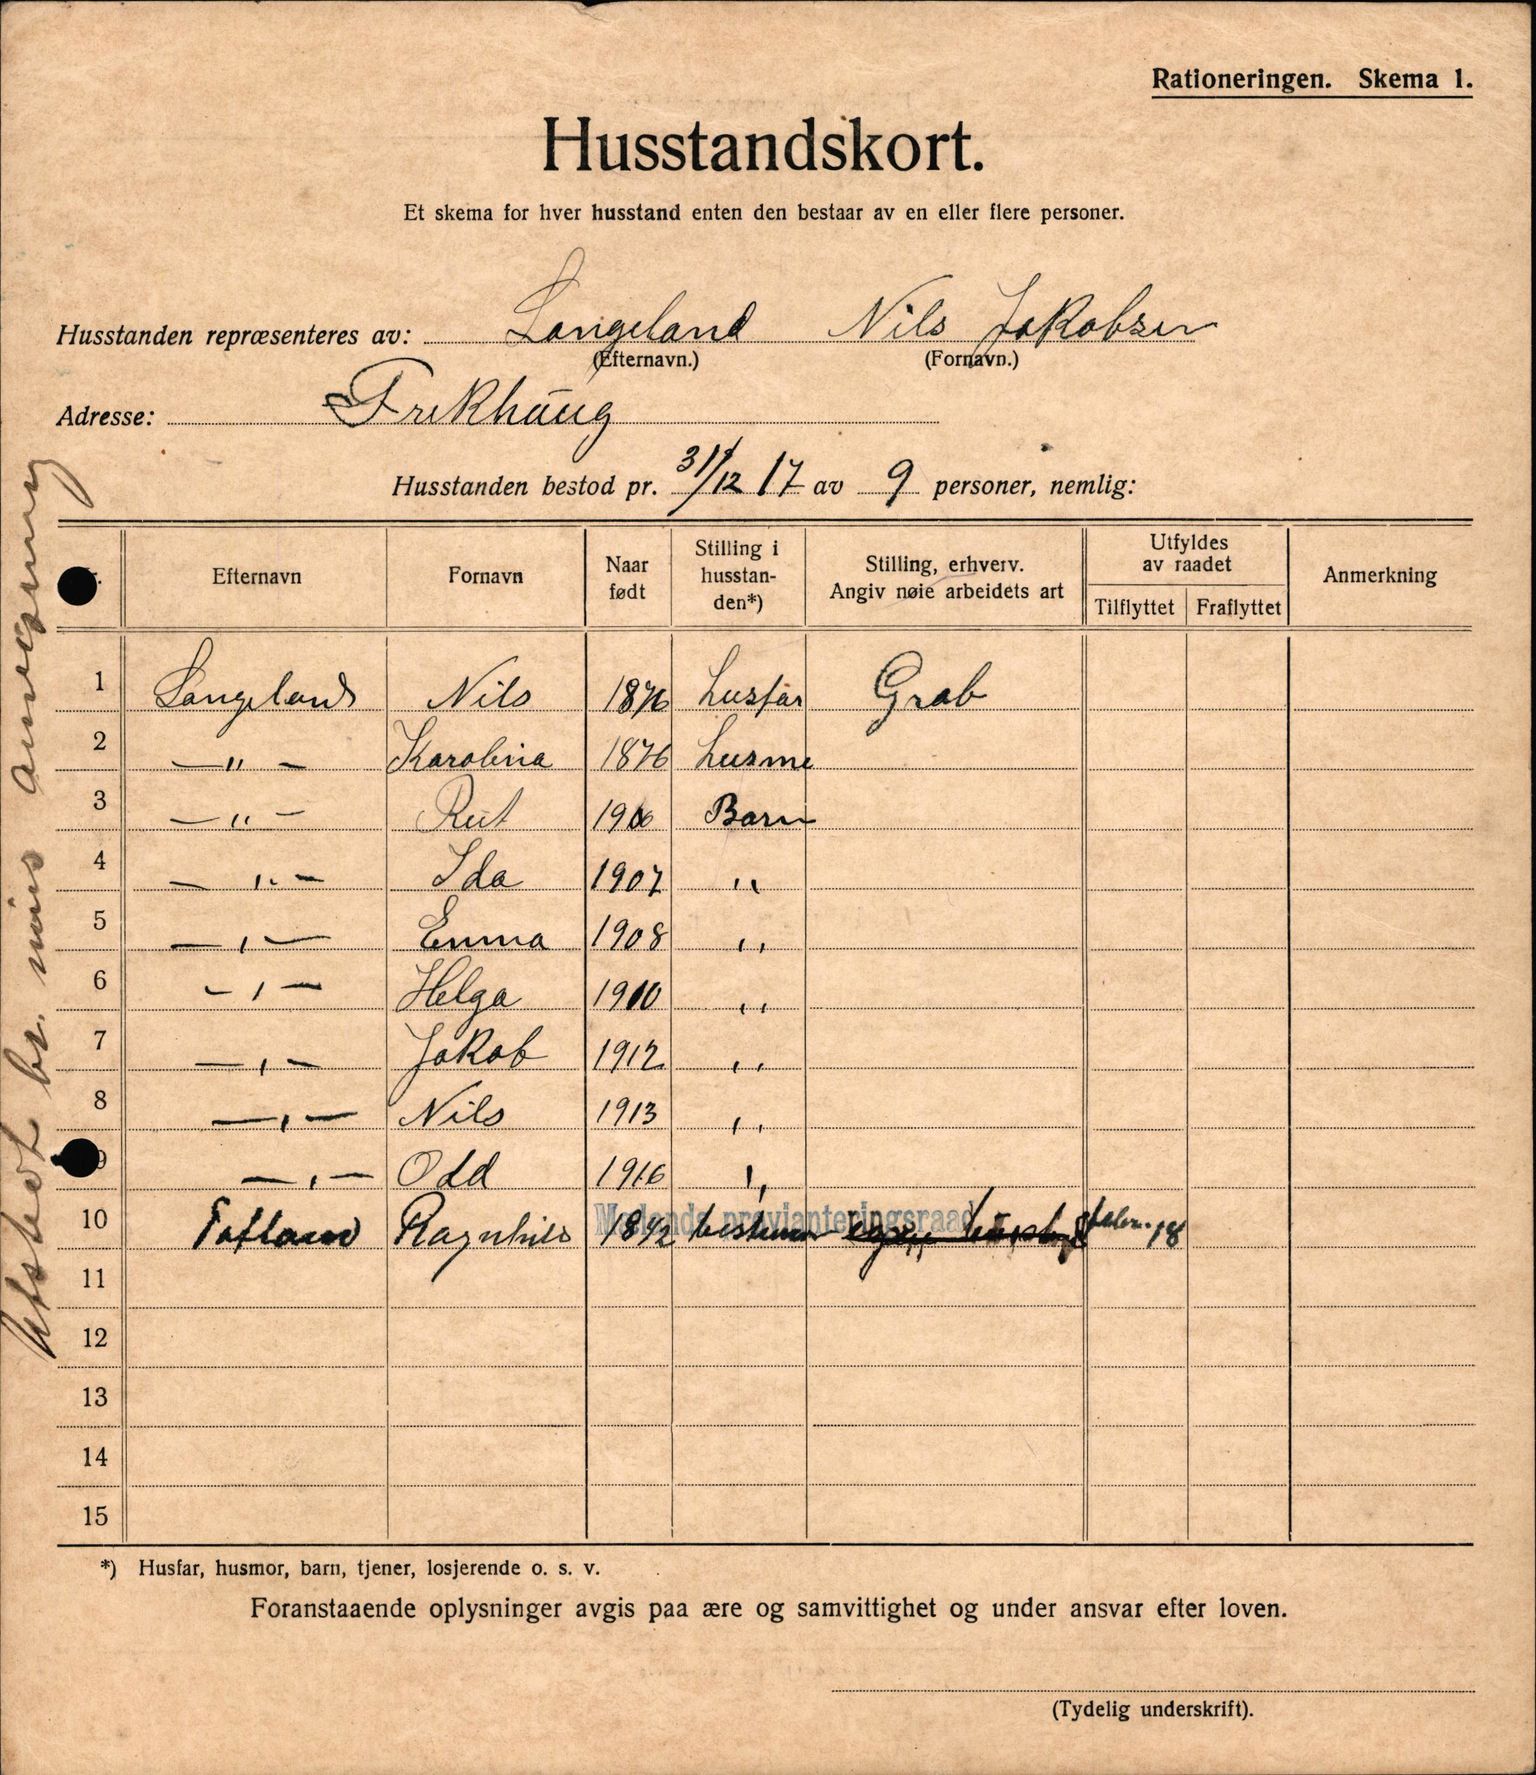 Rationeringen. Skema 1.
Husstandskort.
Et skema for hver husstand enten den bestaar av en eller flere personer.
Husstanden repræsenteres av: Langeland Nils Jakobsen
(Efternavn.) (Fornavn.)
Adresse: Frekhaug
Husstanden bestod pr. 31/12 17 av 9 personer, nemlig:
Efternavn Fornavn Naar født Stilling i husstanden*) Stilling, erhverv. Angiv nøie arbeidets art Utfyldes av raadet Tilflyttet Fraflyttet Anmerkning
1 Langeland Nils 1876 husfar
2 — " — Karolina 1876 husmo
3 — " — Rut 1906 Barn
4 — " — Ida 1907 "
5 — " — Emma 1908 "
6 — " — Helga 1910 "
7 — " — Jakob 1912 "
8 — " — Nils 1913 "
9 — " — Odd 1916 "
Mælands provianteringsraad
10 Ragnhild 1842 febr. 18
11
12
13
14
15
*) Husfar, husmor, barn, tjener, losjerende o. s. v.
Foranstaaende oplysninger avgis paa ære og samvittighet og under ansvar efter loven.
(Tydelig underskrift).